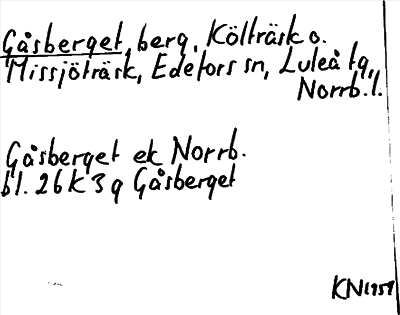 Gåsberget, berg, Költräsk o.
Missjöträsk, Edefors sn, Luleå tg,
Norrb. l.
Gåsberget ek Norrb.
bl. 26 K 3 g Gåsberget
KN 1959